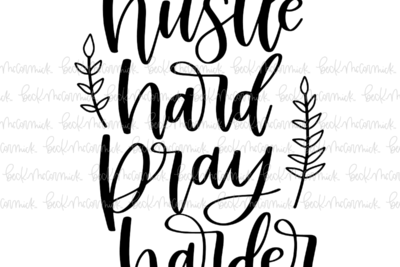 hustle
hard
pray
harder